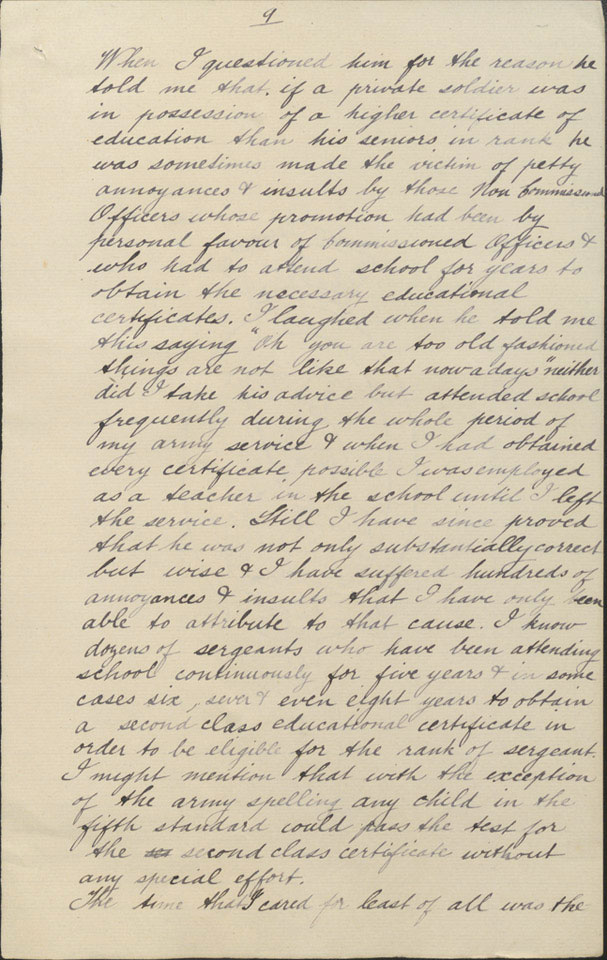 9
When I questioned him for the reason he
told me that, if a private soldier was
in possession of a higher certificate of
education than his seniors in rank he
was sometimes made the victim of petty
annoyances & insults by those Non Commissioned
Officers whose promotion had been by
personal favour of Commissioned Officers &
who had to attend school for years to
obtain the necessary educational
certificates. I laughed when he told me
this saying "Oh you are too old fashioned
things are not like that nowadays" neither
did I take his advice but attended school
frequently during the whole period of
my army service & when I had obtained
every certificate possible I was employed
as a teacher in the school until I left
the service. Still I have since proved
that he was not only substantially correct
but wise & I have suffered hundreds of
annoyances & insults that I have only been
able to attribute to that cause. I know
dozens of sergeants who have been attending
school continuously for five years & in some
cases six, seven & even eight years to obtain
a second class educational certificate in
order to be eligible for the rank of sergeant.
I might mention that with the exception
of the army spelling any child in the
fifth standard would pass the test for
the second class certificate without
any special effort.
The time that I cared for least of all was the